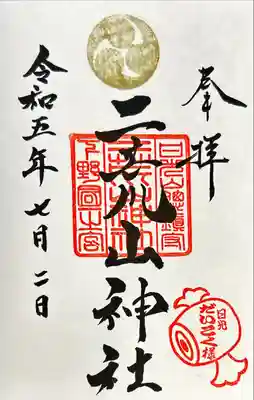 奉拝
二荒山神社
令和五年七月二日
日光山總鎮守
下野國一之宮
二荒山神社
日光
だいこく様